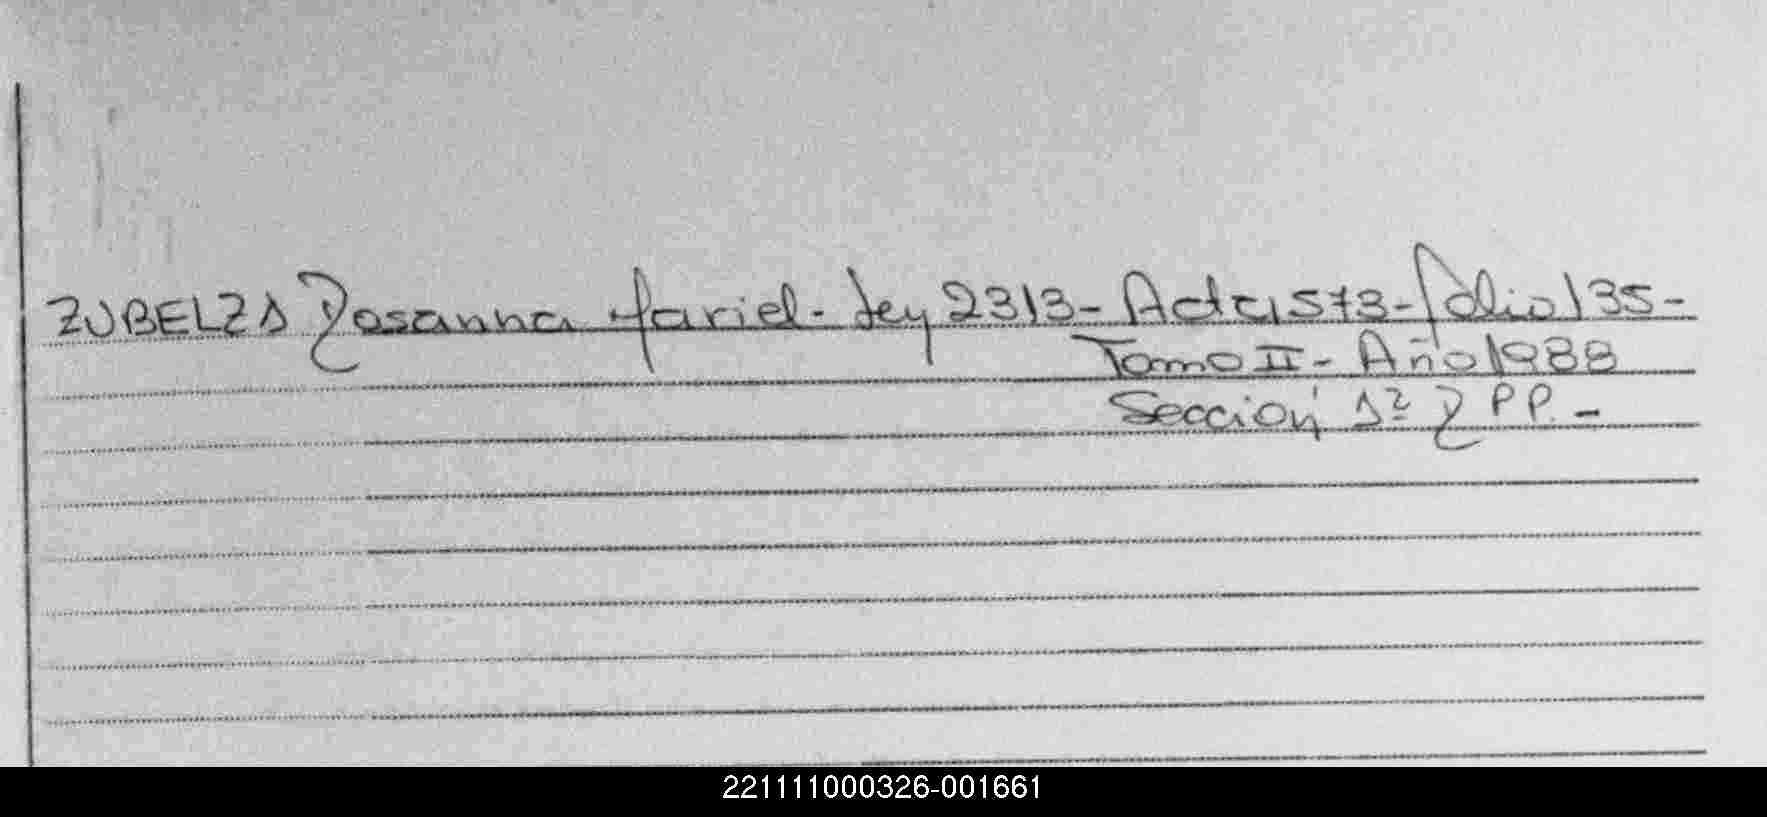 ZUBELZA Rosanna Mariel - Ley 2313 - Acta 573 - folio 135 -
Tomo II - Año 1988
Sección 1ª R PP. -
221111000326-001661